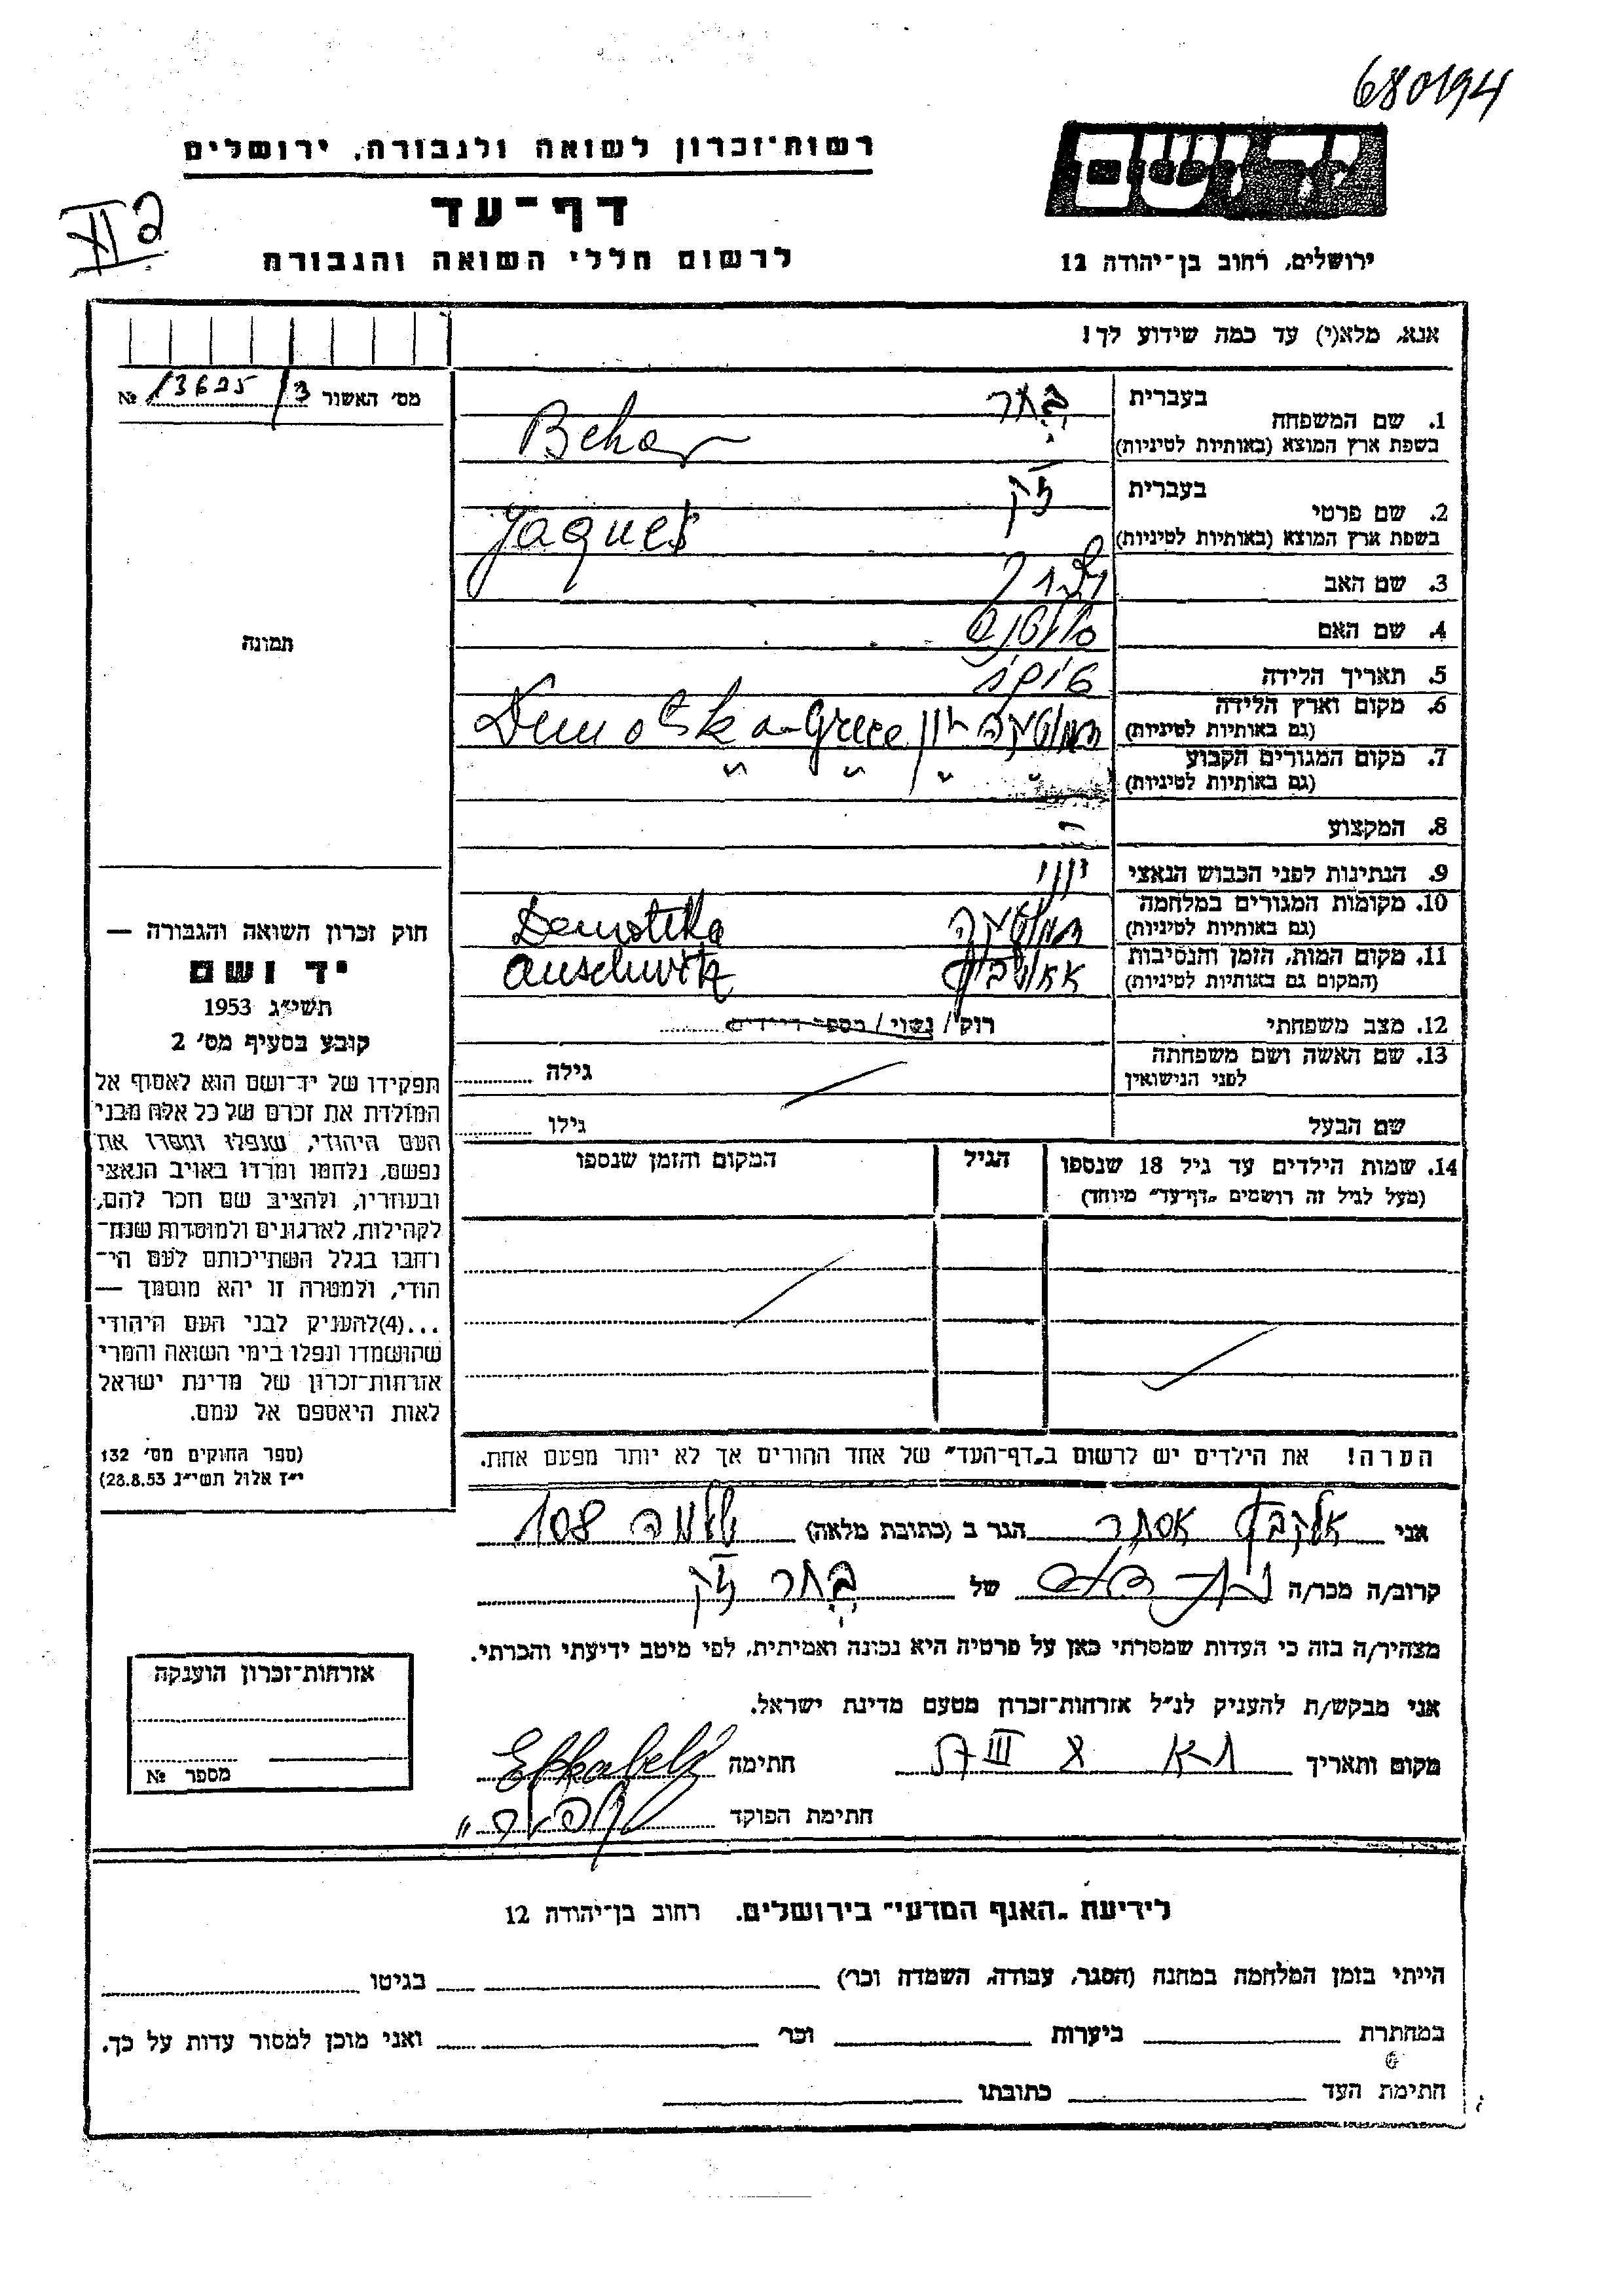 680194
רשות־זכרון לשואה ולגבורה, ירושלים
יד ושם
דף־עד
לרשום חללי השואה והגבורה
ירושלים, רחוב בן־יהודה 12
אנא, מלא(י) עד כמה שידוע לך!
מס׳ האשור 13625/3 №
בעברית בכר
1. שם המשפחה
בשפת ארץ המוצא (באותיות לטיניות) Behar
בעברית ז'ק
2. שם פרטי
בשפת ארץ המוצא (באותיות לטיניות) Jaques
3. שם האב
4. שם האם
5. תאריך הלידה
6. מקום וארץ הלידה דמוטיקה יון Demotika-Grece
(גם באותיות לטיניות)
7. מקום המגורים הקבוע " " " "
(גם באותיות לטיניות)
8. המקצוע
9. הנתינות לפני הכבוש הנאצי יווני
10. מקומות המגורים במלחמה דמוטיקה Demotika
(גם באותיות לטיניות)
11. מקום המות, הזמן והנסיבות אאושביץ Auschwitz
(המקום גם באותיות לטיניות)
12. מצב משפחתי רוק / נשוי / מספר הילדים
13. שם האשה ושם משפחתה גילה
לפני הנישואין
שם הבעל גילו
תמונה
חוק זכרון השואה והגבורה —
יד ושם
תשי״ג 1953
קובע בסעיף מס׳ 2
תפקידו של יד־ושם הוא לאסוף אל
המולדת את זכרם של כל אלה מבני
העם היהודי, שנפלו ומסרו את
נפשם, נלחמו ומרדו באויב הנאצי
ובעוזריו, ולהציב שם וזכר להם,
לקהילות, לארגונים ולמוסדות שנח־
רבו בגלל השתייכותם לעם הי־
הודי, ולמטרה זו יהא מוסמך —
...(4)להעניק לבני העם היהודי
שהושמדו ונפלו בימי השואה והמרי
אזרחות־זכרון של מדינת ישראל
לאות היאספם אל עמם.
(ספר החוקים מס׳ 132
י״ז אלול תשי״ג 28.8.53)
14. שמות הילדים עד גיל 18 שנספו הגיל המקום והזמן שנספו
(מעל לגיל זה רושמים „דף־עד״ מיוחד)
הערה! את הילדים יש לרשום ב„דף־העד״ של אחד ההורים אך לא יותר מפעם אחת.
אני אלקבץ אסתר הגר ב (כתובת מלאה) שלמה 108
קרוב/ה מכר/ה של בכר ז'ק
מצהיר/ה בזה כי העדות שמסרתי כאן על פרטיה היא נכונה ואמיתית, לפי מיטב ידיעתי והכרתי.
אני מבקש/ת להעניק לנ״ל אזרחות־זכרון מטעם מדינת ישראל.
מקום ותאריך חתימה
חתימת הפוקד
אזרחות־זכרון הוענקה
מספר №
לידיעת „האגף המדעי״ בירושלים. רחוב בן־יהודה 12
הייתי בזמן המלחמה במחנה (הסגר, עבודה, השמדה וכר׳) בגיטו
במחתרת ביערות וכר׳ ואני מוכן למסור עדות על כך.
חתימת העד כתובתו